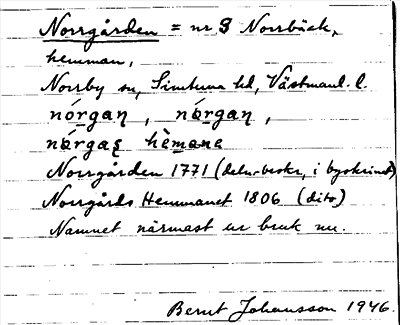 Norrgården = nr 3 Norrbäck,
hemman,
Norrby sn, Simtuna hd, Västmanl. l.
nórgaṇ, nórgaṇ,
nórgas hèmane
Norrgården 1771 (deln.beskr. i byskrinet)
Norrgårds Hemmanet 1806 (dito)
Namnet närmast ur bruk nu.
Bernt Johansson 1946.